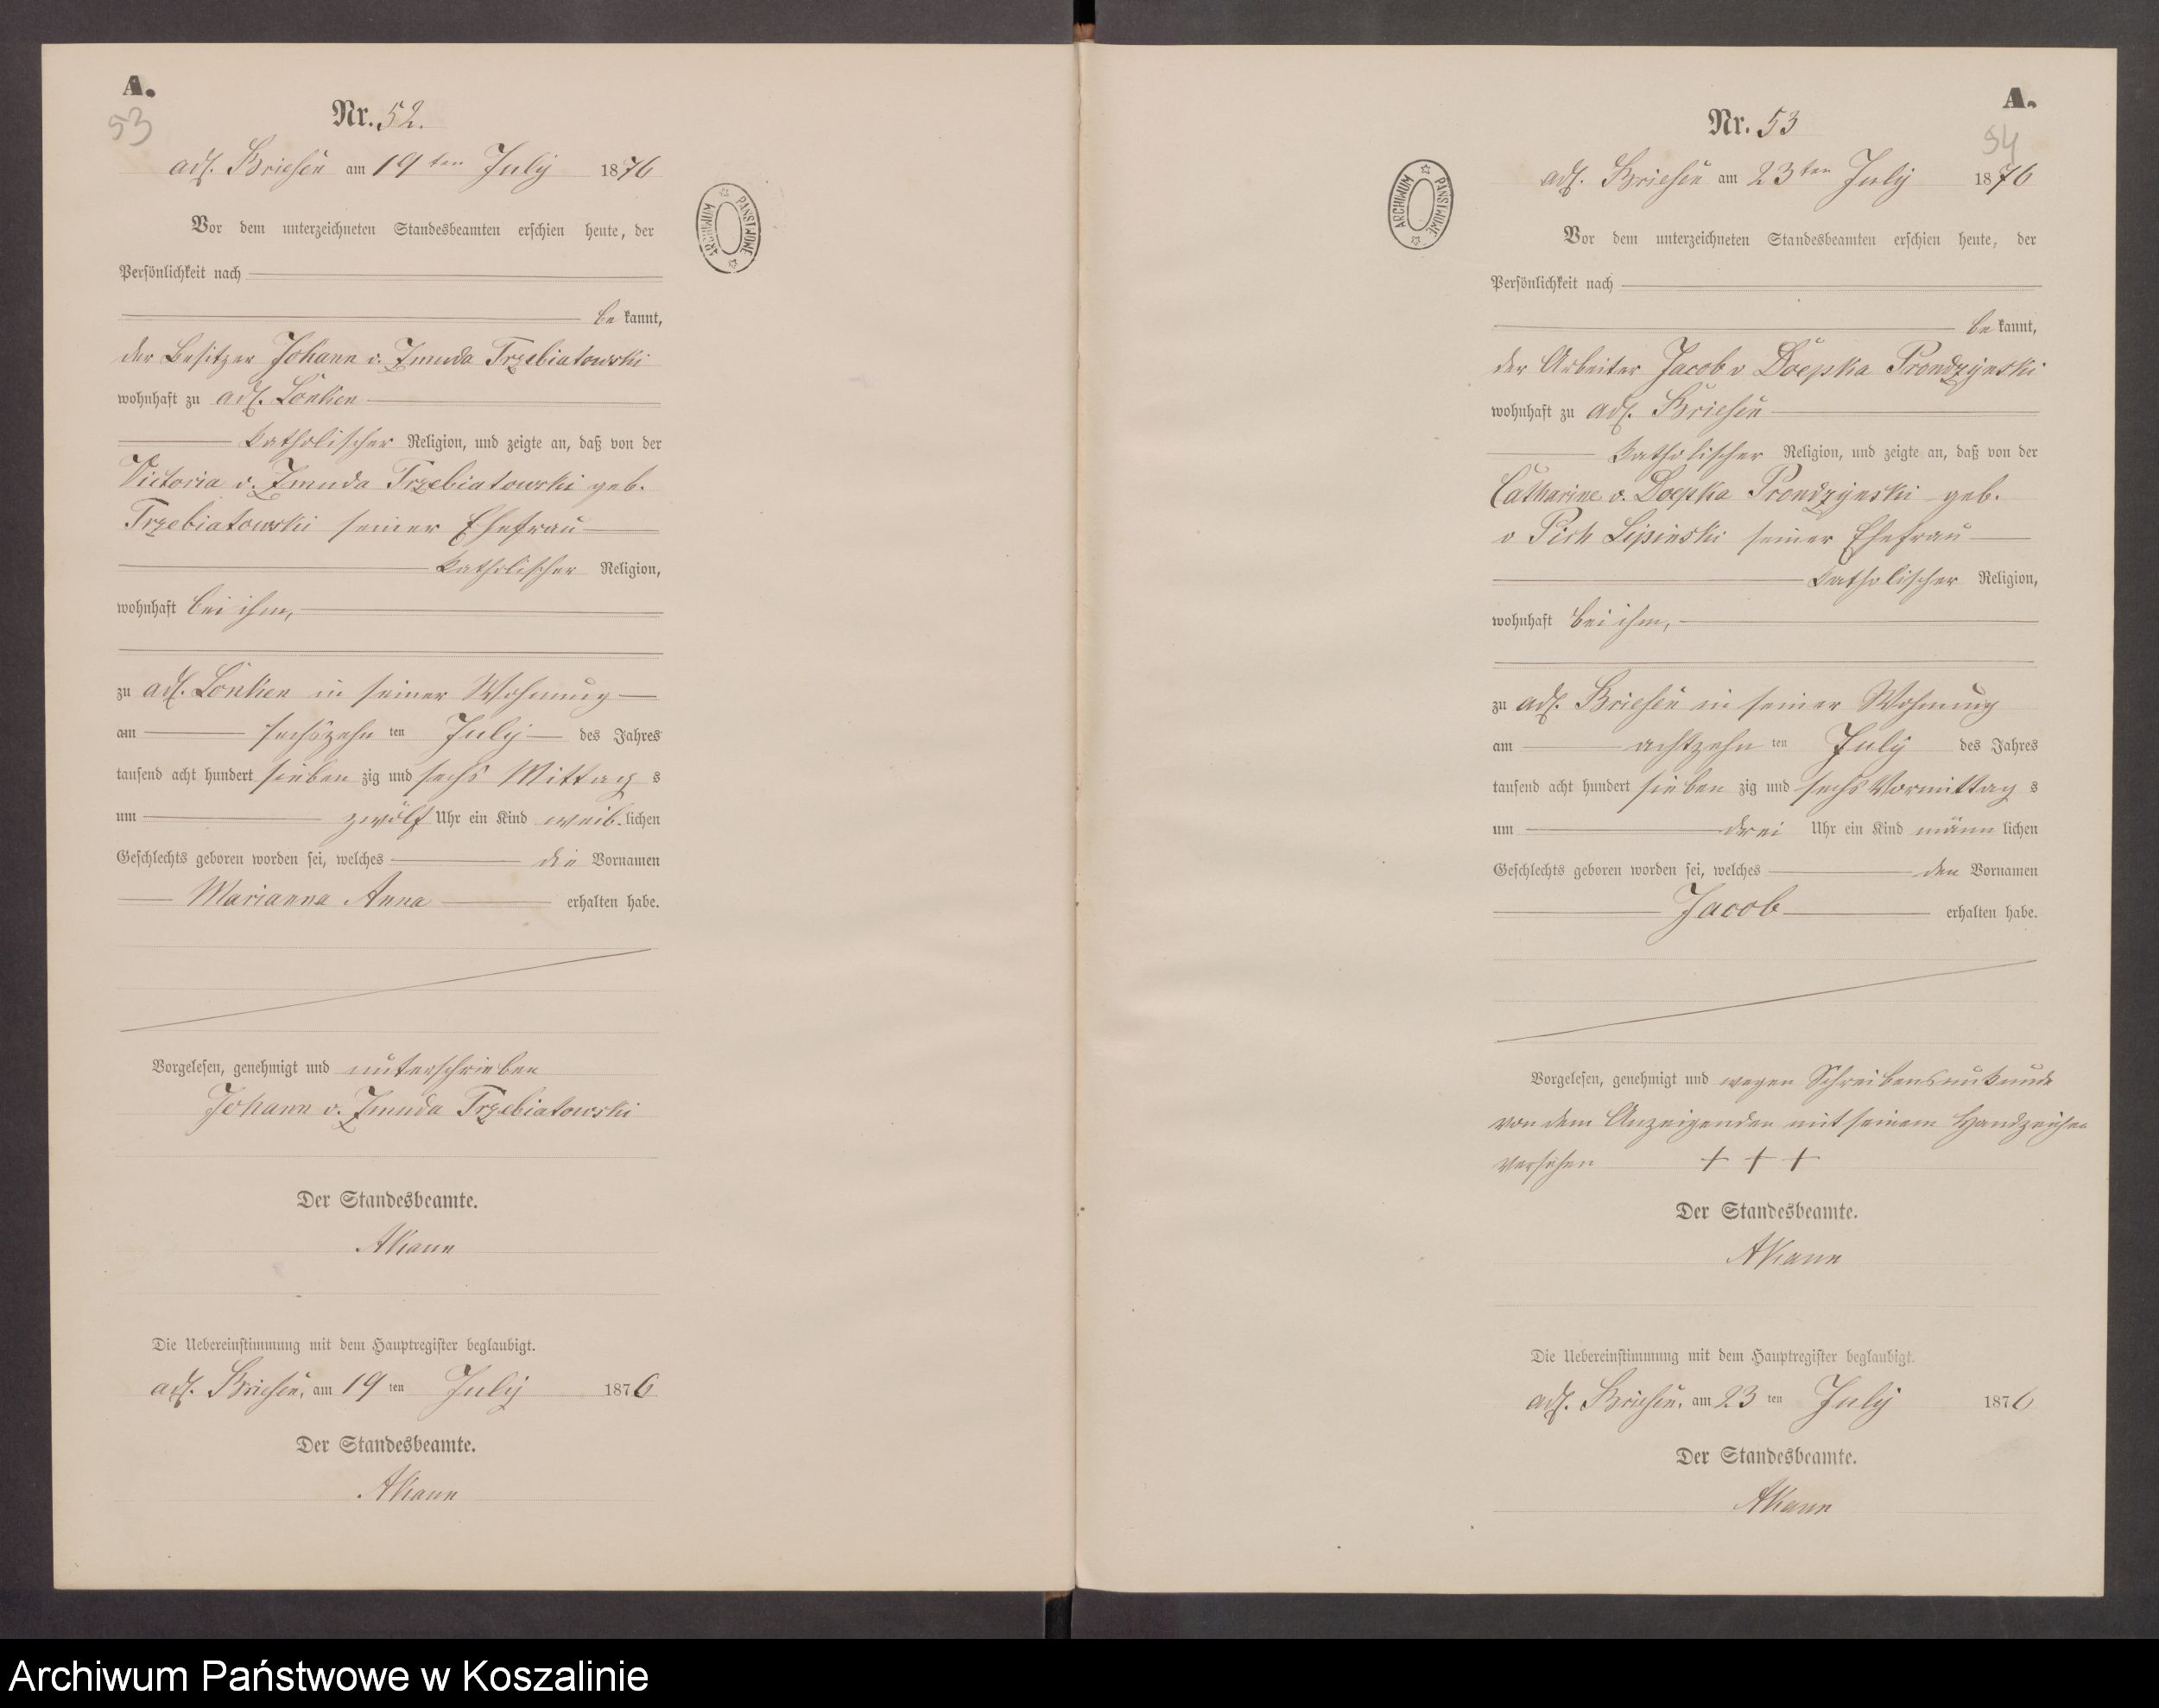 A.
53
Nr. 52.
adl. Briesen am 19ten July 1876
ARCHIWUM PAŃSTWOWE
Vor dem unterzeichneten Standesbeamten erschien heute, der
Persönlichkeit nach
be kannt,
der Besitzer Johann v. Zmuda Trzebiatowski
wohnhaft zu adl. Lonken
katholischer Religion, und zeigte an, daß von der
Victoria v. Zmuda Trzebiatowski geb.
Trzebiatowski seiner Ehefrau
katholischer Religion,
wohnhaft bei ihm,
zu adl. Lonken in seiner Wohnung
am sechszehn ten July des Jahres
tausend acht hundert sieben zig und sechs Mittag s
um zwölf Uhr ein Kind weib lichen
Geschlechts geboren worden sei, welches die Vornamen
Marianna Anna erhalten habe.
Vorgelesen, genehmigt und unterschrieben
Johann v. Zmuda Trzebiatowski
Der Standesbeamte.
Die Uebereinstimmung mit dem Hauptregister beglaubigt.
adl. Briesen, am 19 ten July 1876
Der Standesbeamte.
A.
54
Nr. 53
adl. Briesen am 23ten July 1876
ARCHIWUM PAŃSTWOWE
Vor dem unterzeichneten Standesbeamten erschien heute, der
Persönlichkeit nach
be kannt,
der Arbeiter Jacob v Doepka Prondzynski
wohnhaft zu adl. Briesen
katholischer Religion, und zeigte an, daß von der
Catharine v. Doepka Prondzynski geb.
v Pich Lipinski seiner Ehefrau
katholischer Religion,
wohnhaft bei ihm,
zu adl. Briesen in seiner Wohnung
am achtzehn ten July des Jahres
tausend acht hundert sieben zig und sechs Vormittag s
um drei Uhr ein Kind männ lichen
Geschlechts geboren worden sei, welches den Vornamen
Jacob erhalten habe.
Vorgelesen, genehmigt und wegen Schreibensunkunde
von dem Anzeigenden mit seinem Handzeichen
versehen + + +
Der Standesbeamte.
Die Uebereinstimmung mit dem Hauptregister beglaubigt.
adl. Briesen, am 23 ten July 1876
Der Standesbeamte.
Archiwum Państwowe w Koszalinie